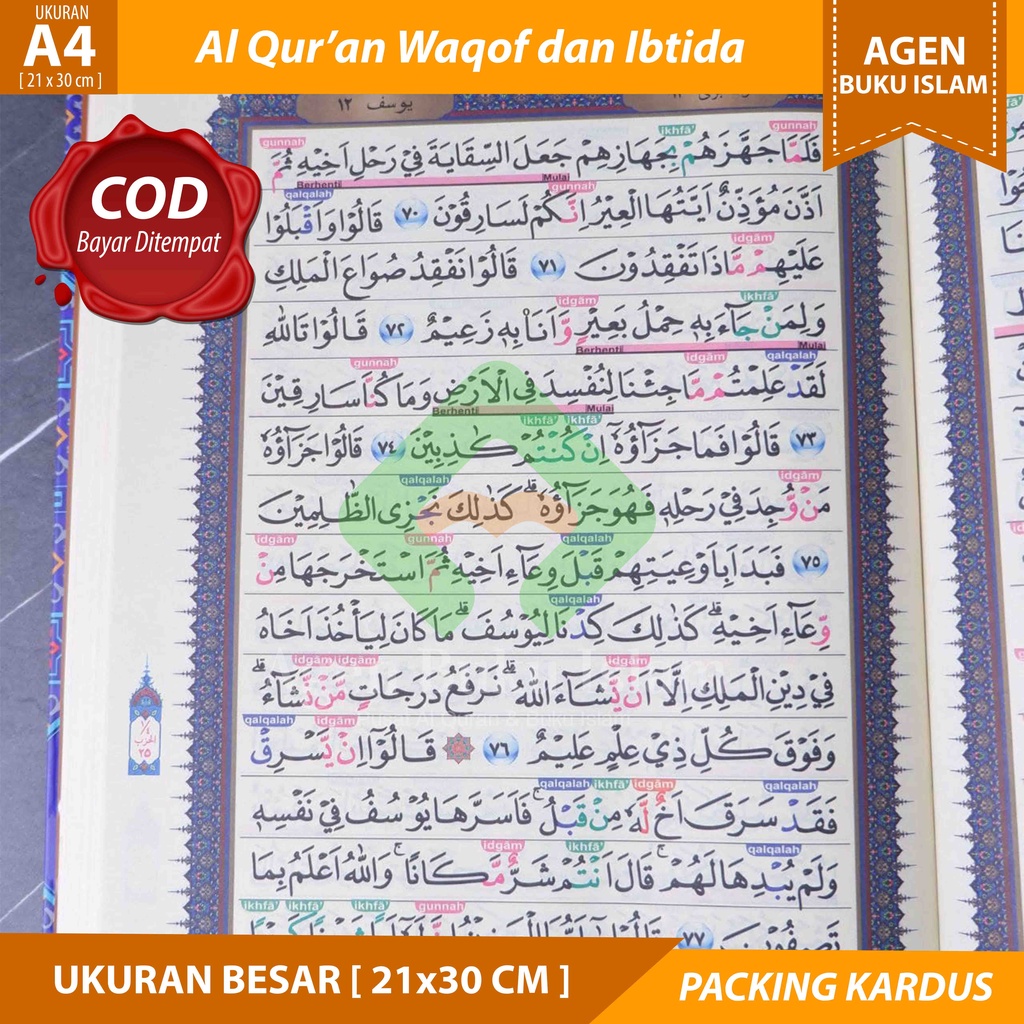 UKURAN
A4
[ 21 x 30 cm ]
Al Qur'an Waqof dan Ibtida
AGEN
BUKU ISLAM
COD
Bayar Ditempat
يوسف ١٢
gunnah ikhfā' gunnah
فَلَمَّا جَهَّزَهُمْ بِجَهَازِهِمْ جَعَلَ السِّقَايَةَ فِيْ رَحْلِ اَخِيْهِ ثُمَّ
Berhenti Mulai
qalqalah gunnah
اَذَّنَ مُؤَذِّنٌ اَيَّتُهَا الْعِيْرُ اِنَّكُمْ لَسَارِقُوْنَ ٧٠ قَالُوْا وَاَقْبَلُوْا
idgām
عَلَيْهِمْ مَّاذَا تَفْقِدُوْنَ ٧١ قَالُوْا نَفْقِدُ صُوَاعَ الْمَلِكِ
idgām ikhfā'
وَلِمَنْ جَاۤءَ بِهٖ حِمْلُ بَعِيْرٍ وَّاَنَا۠ بِهٖ زَعِيْمٌ ٧٢ قَالُوْا تَاللّٰهِ
Berhenti Mulai
gunnah idgām qalqalah
لَقَدْ عَلِمْتُمْ مَّا جِئْنَا لِنُفْسِدَ فِى الْاَرْضِ وَمَا كُنَّا سَارِقِيْنَ
Berhenti Mulai
ikhfā' ikhfā'
٧٣ قَالُوْا فَمَا جَزَاۤؤُهٗٓ اِنْ كُنْتُمْ كٰذِبِيْنَ ٧٤ قَالُوْا جَزَاۤؤُهٗ
qalqalah idgām
مَنْ وُّجِدَ فِيْ رَحْلِهٖ فَهُوَ جَزَاۤؤُهٗ ۗ كَذٰلِكَ نَجْزِى الظّٰلِمِيْنَ
idgām gunnah qalqalah
٧٥ فَبَدَاَ بِاَوْعِيَتِهِمْ قَبْلَ وِعَاۤءِ اَخِيْهِ ثُمَّ اسْتَخْرَجَهَا مِنْ
qalqalah
وِّعَاۤءِ اَخِيْهِ ۗ كَذٰلِكَ كِدْنَا لِيُوْسُفَ ۗ مَا كَانَ لِيَأْخُذَ اَخَاهُ
idgām idgām idgām
فِيْ دِيْنِ الْمَلِكِ اِلَّآ اَنْ يَّشَاۤءَ اللّٰهُ ۗ نَرْفَعُ دَرَجَاتٍ مَّنْ نَّشَاۤءُ ۗ
qalqalah idgām
وَفَوْقَ كُلِّ ذِيْ عِلْمٍ عَلِيْمٌ ٧٦ قَالُوْٓا اِنْ يَّسْرِقْ
الحزب
٢٥
qalqalah ikhfā' idgām qalqalah
فَقَدْ سَرَقَ اَخٌ لَّهٗ مِنْ قَبْلُ ۚ فَاَسَرَّهَا يُوْسُفُ فِيْ نَفْسِهٖ
idgām ikhfā' qalqalah
وَلَمْ يُبْدِهَا لَهُمْ ۚ قَالَ اَنْتُمْ شَرٌّ مَّكَانًا ۚ وَاللّٰهُ اَعْلَمُ بِمَا
ikhfā' ikhfā' ikhfā' gunnah
تَصِفُوْنَ ٧٧
UKURAN BESAR [ 21x30 CM ]
PACKING KARDUS